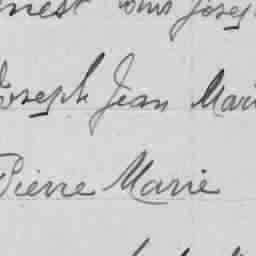 Ernest Louis Joseph
Joseph Jean Marie
Pierre Marie